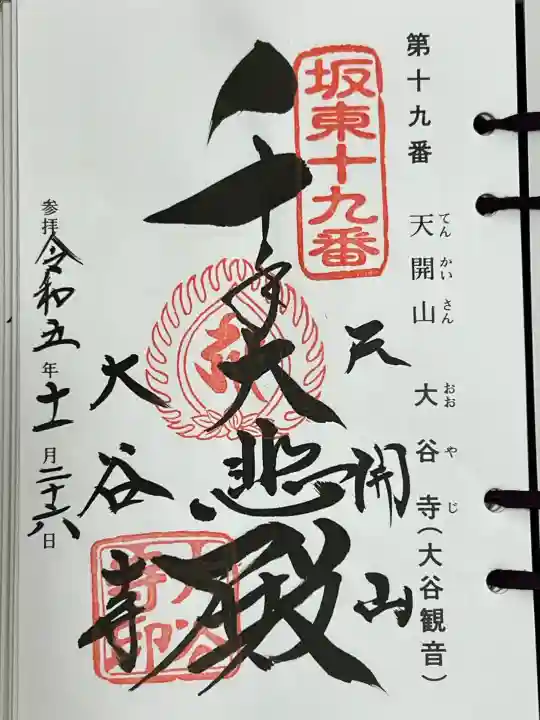 第十九番 天開山 大谷寺(大谷観音)
てんかいさん おおやじ
坂東十九番
天開山
千手大悲殿
大谷寺
大谷寺印
参拝 令和五年十一月二十六日